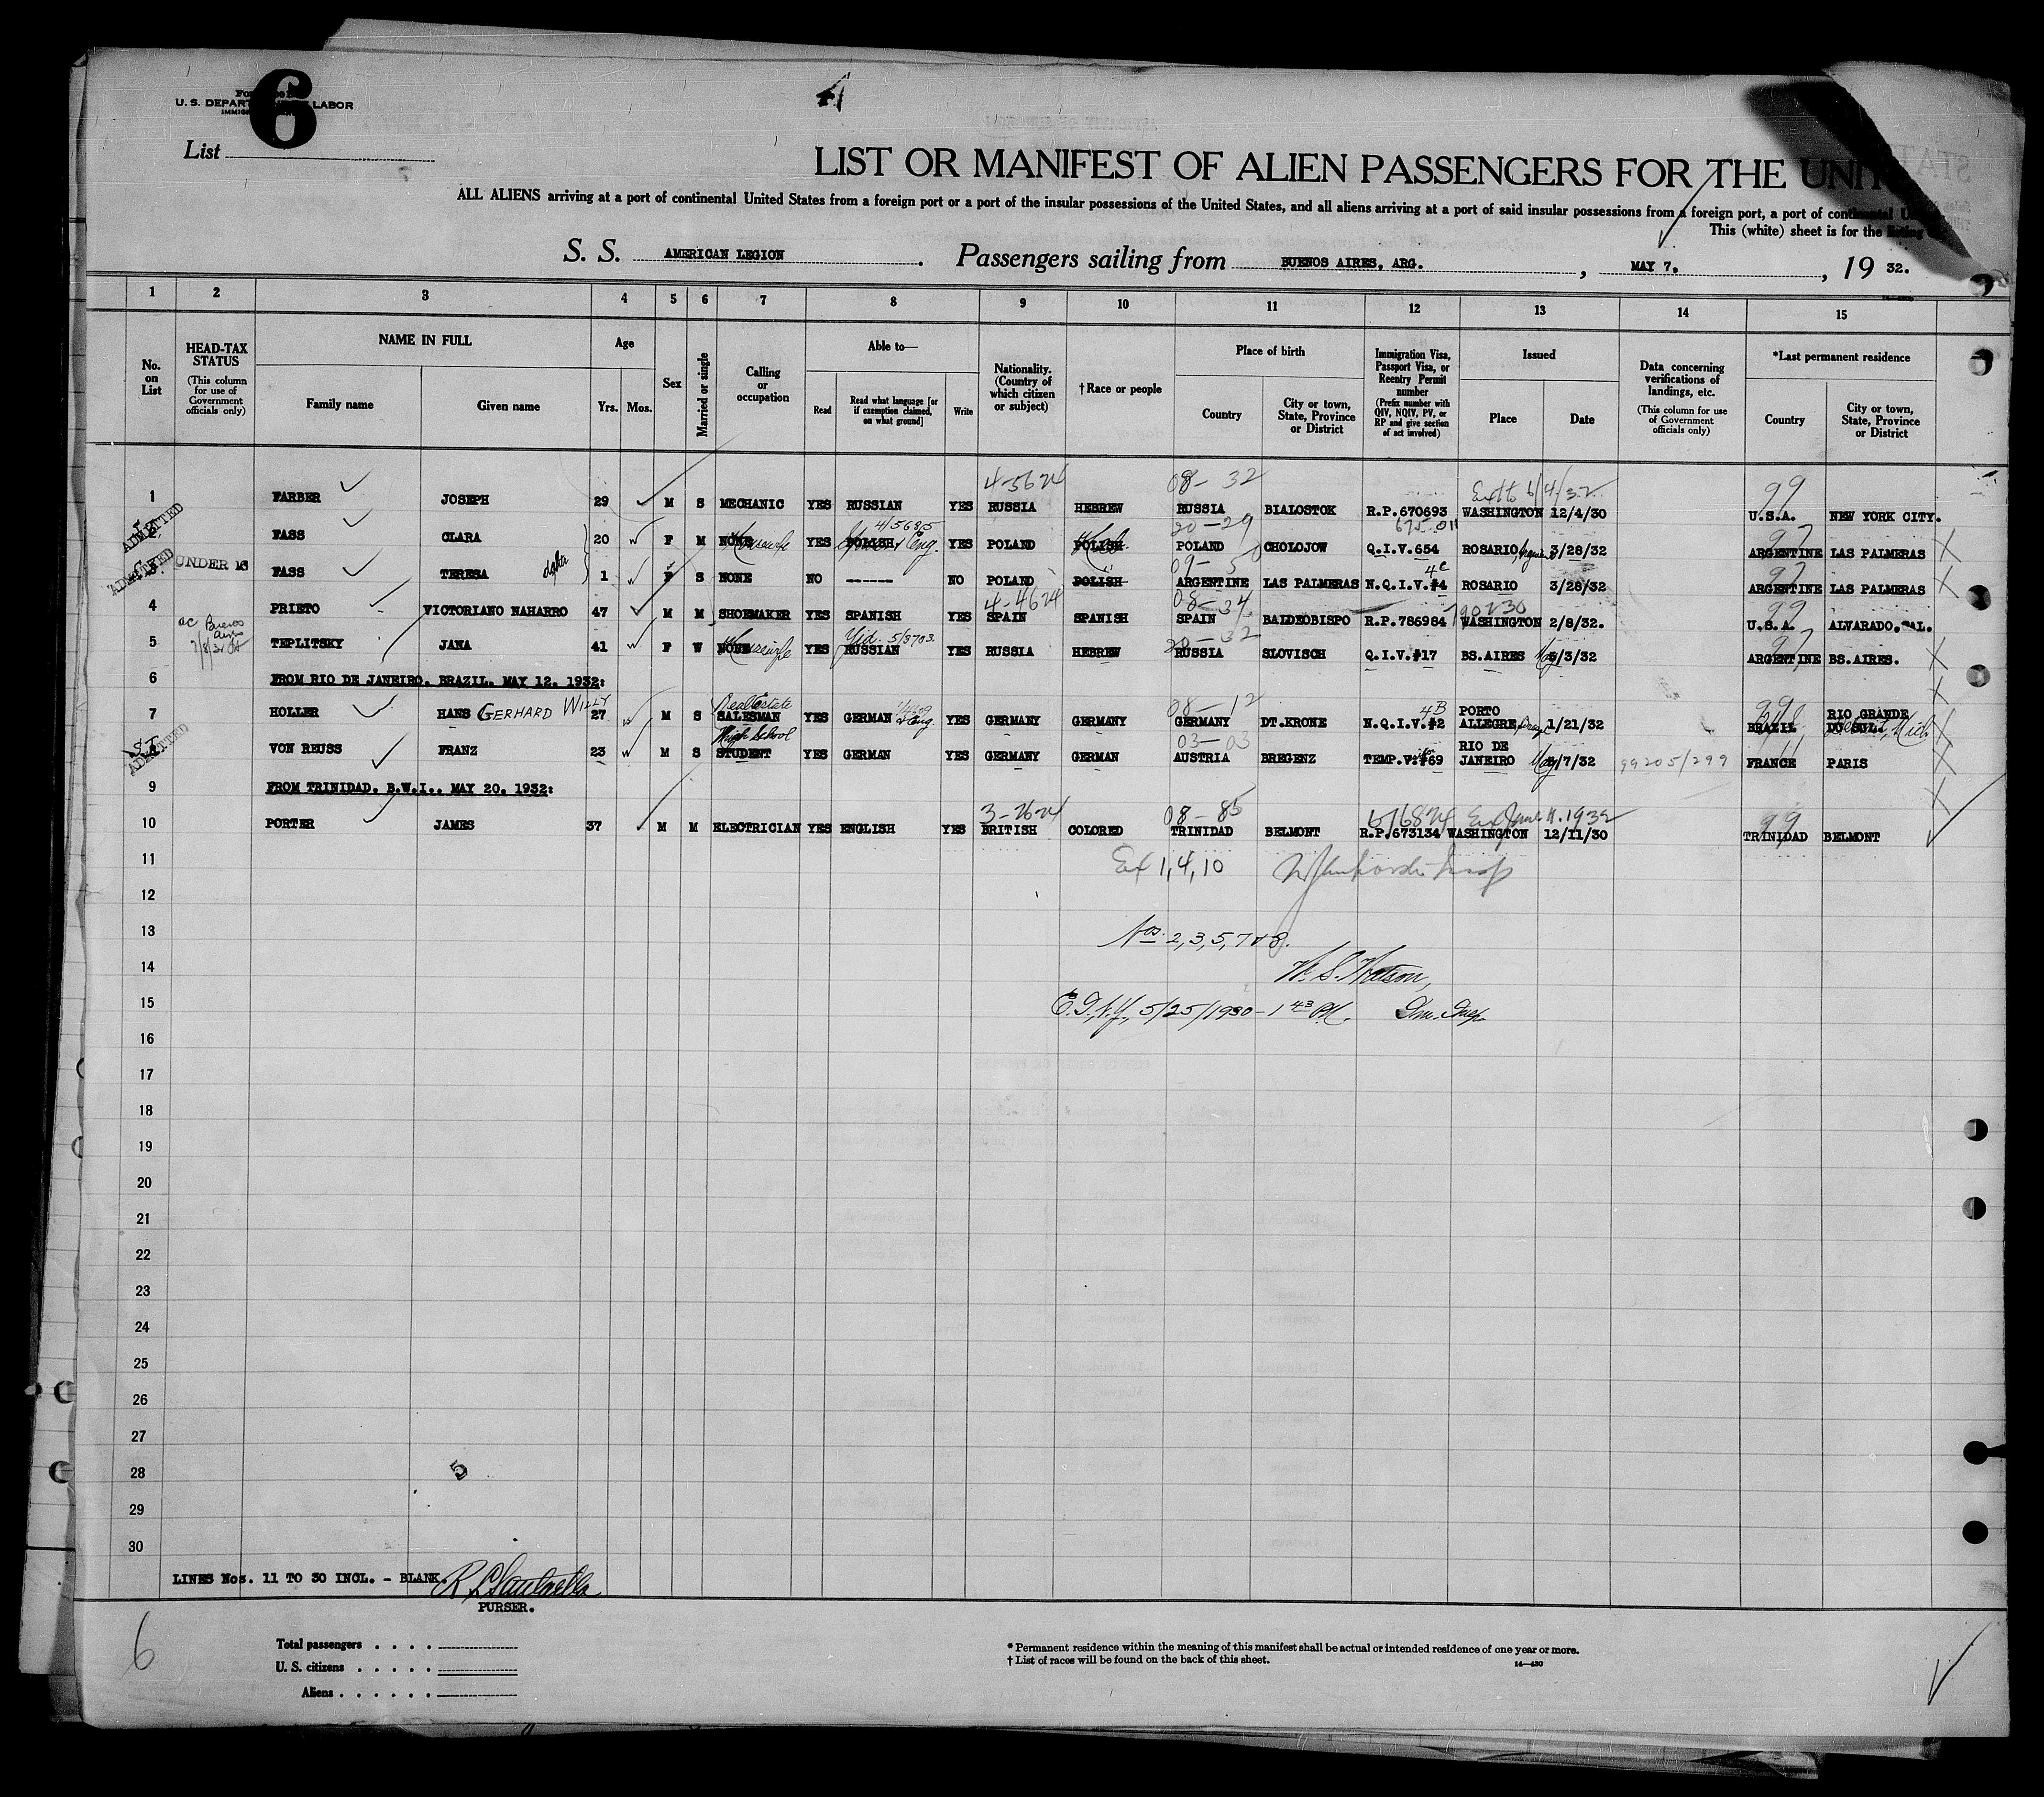 6
U. S. DEPART LABOR
List
LIST OR MANIFEST OF ALIEN PASSENGERS FOR THE UNIT
ALL ALIENS arriving at a port of continental United States from a foreign port or a port of the insular possessions of the United States, and all aliens arriving at a port of said insular possessions from a foreign port, a port of continental
This (white) sheet is for the listing
S. S. AMERICAN LEGION. Passengers sailing from BUENOS AIRES, ARG., MAY 7, 19 32.
1 2 3 4 5 6 7 8 9 10 11 12 13 14 15
No. on List
HEAD-TAX STATUS (This column for use of Government officials only)
NAME IN FULL
Family name Given name
Age
Yrs. Mos.
Sex
Married or single
Calling or occupation
Able to—
Read
Read what language [or if exemption claimed, on what ground]
Write
Nationality. (Country of which citizen or subject)
†Race or people
Place of birth
Country
City or town, State, Province or District
Immigration Visa, Passport Visa, or Reentry Permit number (Prefix number with QIV, NQIV, PV, or RP and give section of act involved)
Issued
Place Date
Data concerning verifications of landings, etc. (This column for use of Government officials only)
*Last permanent residence
Country
City or town, State, Province or District
4-5624 08-32 Ext to 6/4/32 99
1 FARBER JOSEPH 29 M S MECHANIC YES RUSSIAN YES RUSSIA HEBREW RUSSIA BIALOSTOK R.P.670693 WASHINGTON 12/4/30 U.S.A. NEW YORK CITY.
ADMITTED 4/5685 20-29 675-011
FASS CLARA 20 F M NONE YES POLISH & Eng. YES POLAND POLISH POLAND CHOLOJOW Q.I.V.654 ROSARIO 3/28/32 ARGENTINE LAS PALMERAS
ADMITTED UNDER 16 09-50 4c
FASS TERESA 1 F S NONE NO ------ NO POLAND POLISH ARGENTINE LAS PALMERAS N.Q.I.V.#4 ROSARIO 3/28/32 ARGENTINE LAS PALMERAS
4-4624 08-34 790230 99
4 PRIETO VICTORIANO NAHARRO 47 M M SHOEMAKER YES SPANISH YES SPAIN SPANISH SPAIN BALDEOBISPO R.P.786984 WASHINGTON 2/8/32. U.S.A. ALVARADO, CAL.
Buenos Yid. 5/3703 20-32
5 TEPLITSKY JANA 41 F W NONE YES RUSSIAN YES RUSSIA HEBREW RUSSIA SLOVISCH Q.I.V.#17 BS.AIRES 5/3/32 ARGENTINE BS.AIRES.
6 FROM RIO DE JANEIRO, BRAZIL, MAY 12, 1932:
Real Estate 08-12 4B
7 HOLLER HANS GERHARD WILLY 27 M S SALESMAN YES GERMAN & Eng. YES GERMANY GERMANY GERMANY DT.KRONE N.Q.I.V.#2 PORTO ALLEGRE, 1/21/32 BRAZIL RIO GRANDE DO SUL. Detroit, Mich.
ADMITTED High School 03-03
VON REUSS FRANZ 23 M S STUDENT YES GERMAN YES GERMANY GERMAN AUSTRIA BREGENZ TEMP.V.#69 RIO DE JANEIRO 5/7/32 99205/299 FRANCE PARIS
9 FROM TRINIDAD, B.W.I., MAY 20, 1932:
3-2624 08-85 99
10 PORTER JAMES 37 M M ELECTRICIAN YES ENGLISH YES BRITISH COLORED TRINIDAD BELMONT R.P.673134 WASHINGTON 12/11/30 TRINIDAD BELMONT
11 1, 4, 10
12
13 Nos. 2, 3, 5, 7 & 8.
14 W. S. Watson,
15 5/25/1930 - 1 43 PM. Im. Insp.
16
17
18
19
20
21
22
23
24
25
26
27
28 5
29
30
LINES Nos. 11 TO 30 INCL. - BLANK.
PURSER.
6
Total passengers
U. S. citizens
Aliens
* Permanent residence within the meaning of this manifest shall be actual or intended residence of one year or more.
† List of races will be found on the back of this sheet.
14—430